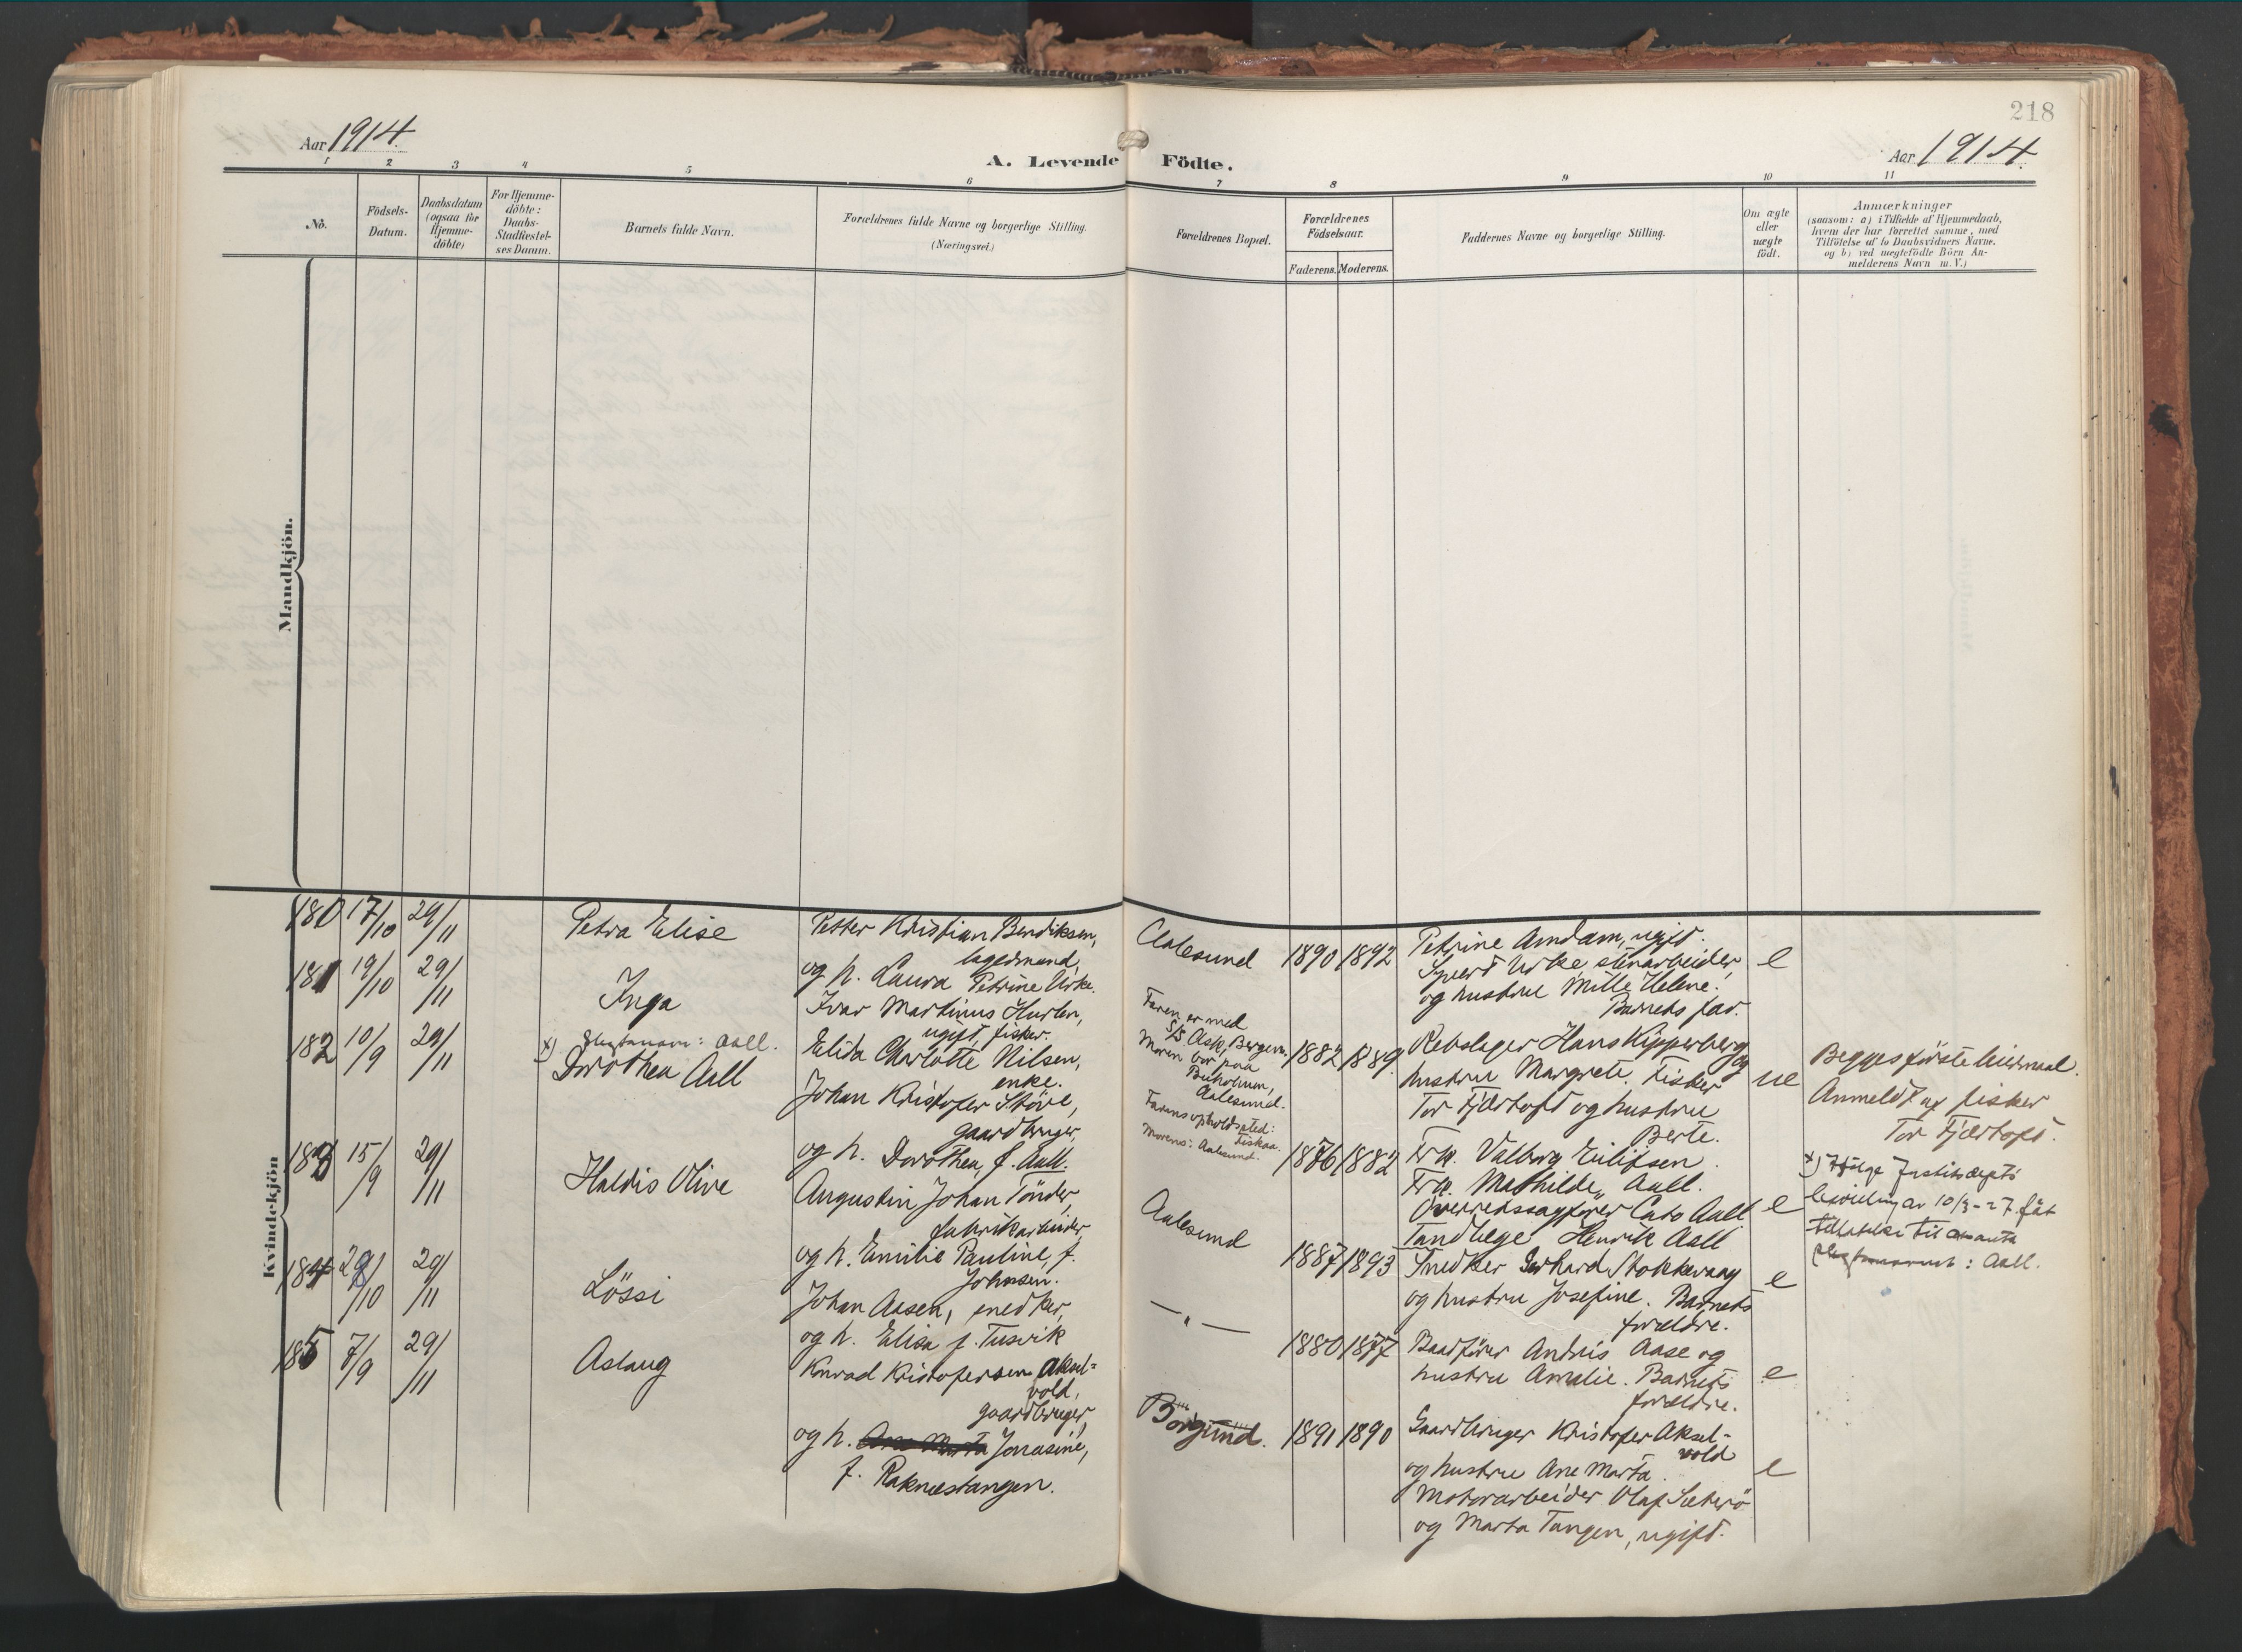 218
Aar 1914.
A. Levende Födte.
Aar 1914.
1 2 3 4 5 6 7 8 9 10 11
No.
Födsels-
Datum.
Daabsdatum
(ogsaa för
Hjemme-
döbte)
For Hjemme-
döbte:
Daabs-
Stadfæstel-
ses Datum.
Barnets fulde Navn.
Forældrenes fulde Navne og borgerlige Stilling.
(Næringsvei.)
Forældrenes Bopæl.
Forældrenes
Födselsaar.
Faderens. Moderens.
Faddernes Navne og borgerlige Stilling.
Om ægte
eller
uægte
födt.
Anmærkninger
(saasom: a) i Tilfælde af Hjemmedaab,
hvem der har forrettet samme, med
Tilföielse af to Daabsvidners Navne.
og b) ved uægtefödte Börn An-
melderens Navn m. V.)
Mandkjön.
Kvindekjön
180 17/10 29/11
Petra Elise
Petter Kristian Bendiksen,
lagermand,
og h. Laura Petrine Urke.
Aalesund
1890 1892
Petrine Amdam, ugift.
Sjuert Urke, stenarbeider,
og hustru Mille Helene.
Barnets far.
e
181 19/10 29/11
Inga
Ivar Martinus Hurlen,
ugift, fisker.
Elida Charlotte Nilsen,
enke.
Faren er med
S/S Ask, Bergen.
Moren bor paa
Buholmen,
Aalesund.
1882 1889
Rebslager Hans Kipperberg og
hustru Margrete. Fisker
Tor Fjærtoft og hustru
Berte.
ue
Begges første leiermaal.
Anmeldt av fisker
Tor Fjærtoft.
182 10/9 29/11
x) Slegtsnavn: Aall.
Dorothea Aall
Johan Kristofer Støve,
gaardbruger,
og h. Dorothea, f. Aall.
Farens opholdssted:
Morens: Aalesund.
1876 1882
Frk. Valborg Eilifsen.
Frk. Mathilde Aall.
Overretssagfører Cato Aall
Tandlæge Henrik Aall
e
x) Ifølge Justitsdepts
bevilling av 10/3-27 fåt
tillatelse til at anta
slegtsnavnet: Aall.
183 15/9 29/11
Haldis Olive
Augustin Johan Tönder,
fabrikarbeider,
og h. Emilie Pauline, f.
Johnsen.
Aalesund
1887 1893
Snedker Gerhard Stokkevaag
og hustru Josefine. Barnets
forældre.
e
184 29/10 29/11
Lössi
Johan Aasen, snedker,
og h. Elisa f. Tusvik
— „ —
1880 1877
Baadfører Andreas Aase og
hustru Amalie. Barnets
forældre.
e
185 7/9 29/11
Aslaug
Konrad Kristofersen Aksel=
vold,
gaardbruger,
og h. Ane Marta Jonasine,
f. Raknestangen.
Borgund.
1891 1890
Gaardbruger Kristofer Aksel-
vold
og hustru Ane Marta.
Motorarbeider Olaf Sæterø
og Marta Tangen, ugift.
e